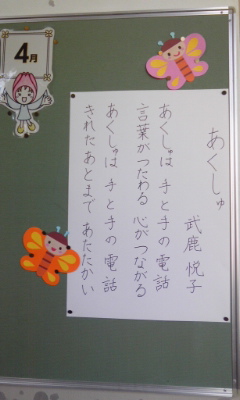 4月
あくしゅ
武鹿 悦子
あくしゅは 手と手の電話
言葉がつたわる 心がつながる
あくしゅは 手と手の電話
きれたあとまで あたたかい